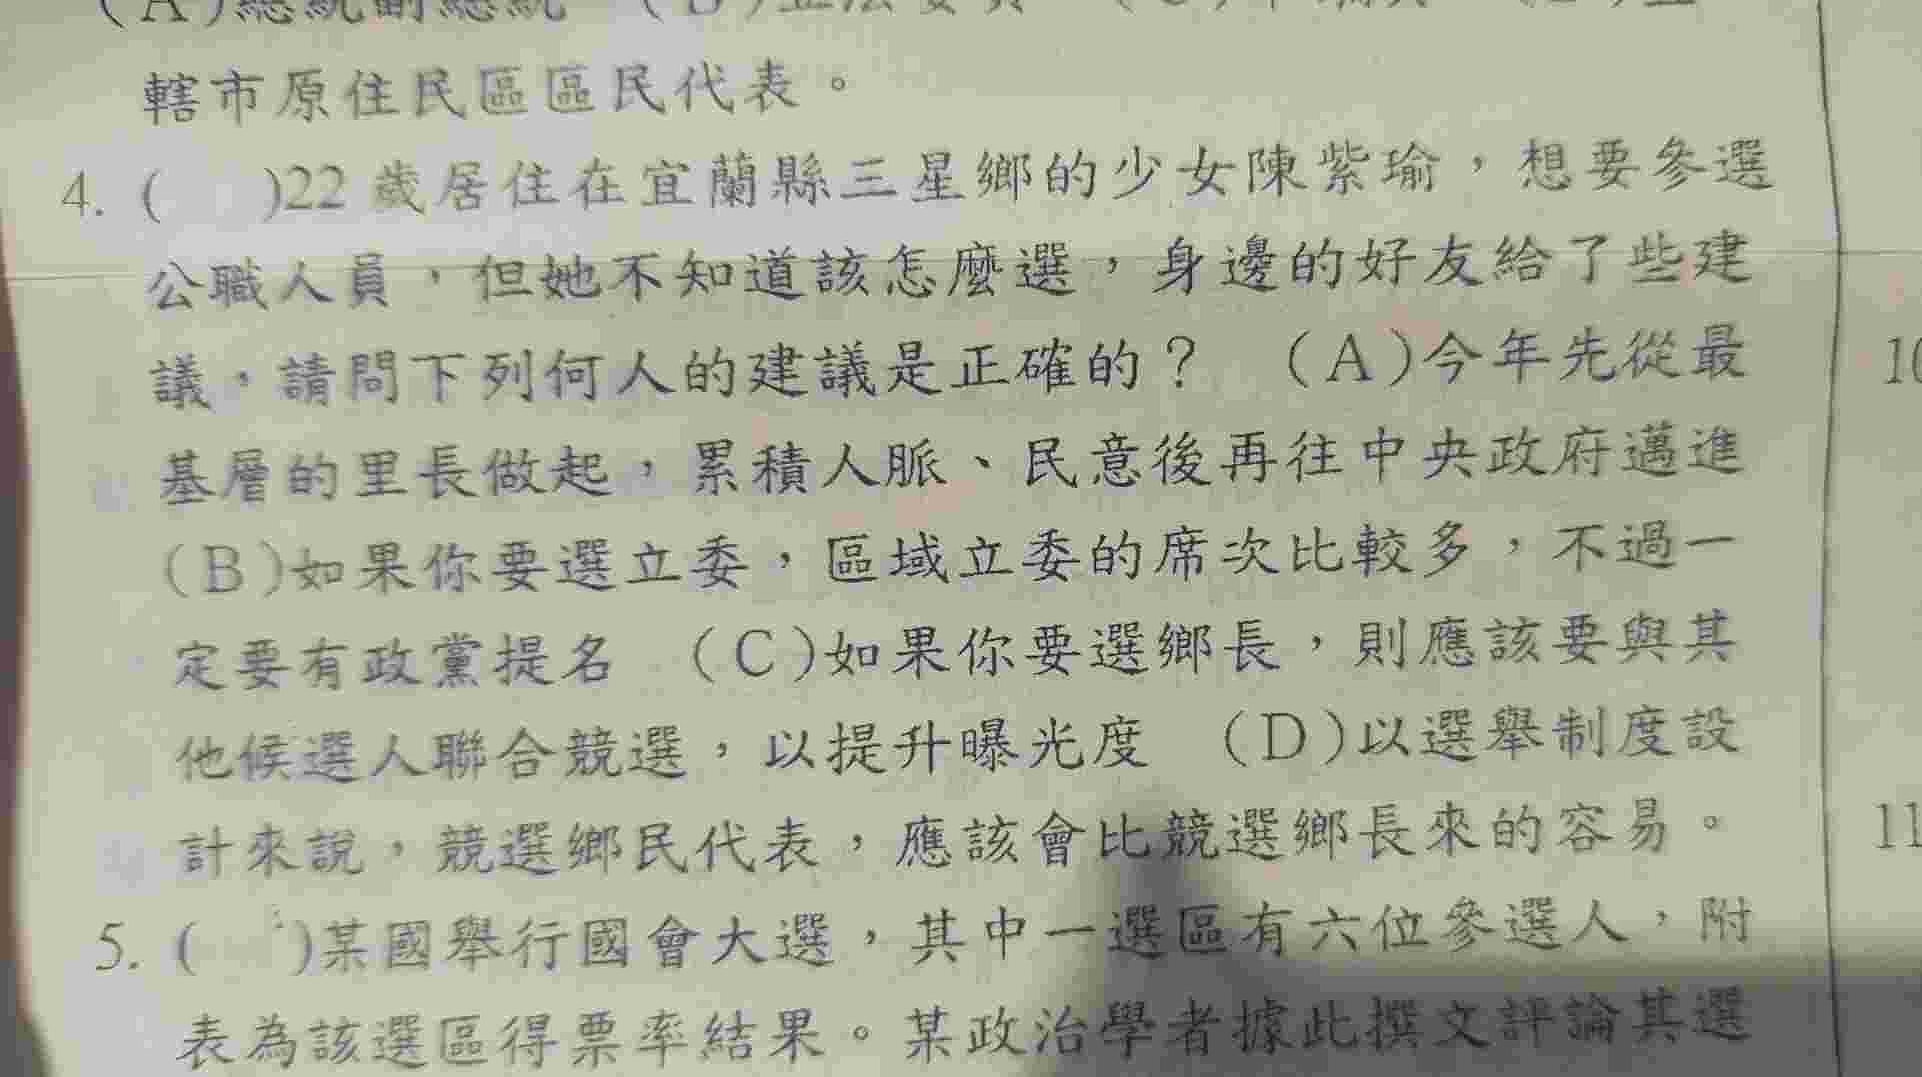 (A)總統副總統
轄市原住民區區民代表。
4. ( )22 歲居住在宜蘭縣三星鄉的少女陳紫瑜，想要參選
公職人員，但她不知道該怎麼選，身邊的好友給了些建
議，請問下列何人的建議是正確的？ (A)今年先從最
10
基層的里長做起，累積人脈、民意後再往中央政府邁進
(B)如果你要選立委，區域立委的席次比較多，不過一
定要有政黨提名 (C)如果你要選鄉長，則應該要與其
他候選人聯合競選，以提升曝光度 (D)以選舉制度設
計來說，競選鄉民代表，應該會比競選鄉長來的容易。
11
5. ( )某國舉行國會大選，其中一選區有六位參選人，附
表為該選區得票率結果。某政治學者據此撰文評論其選